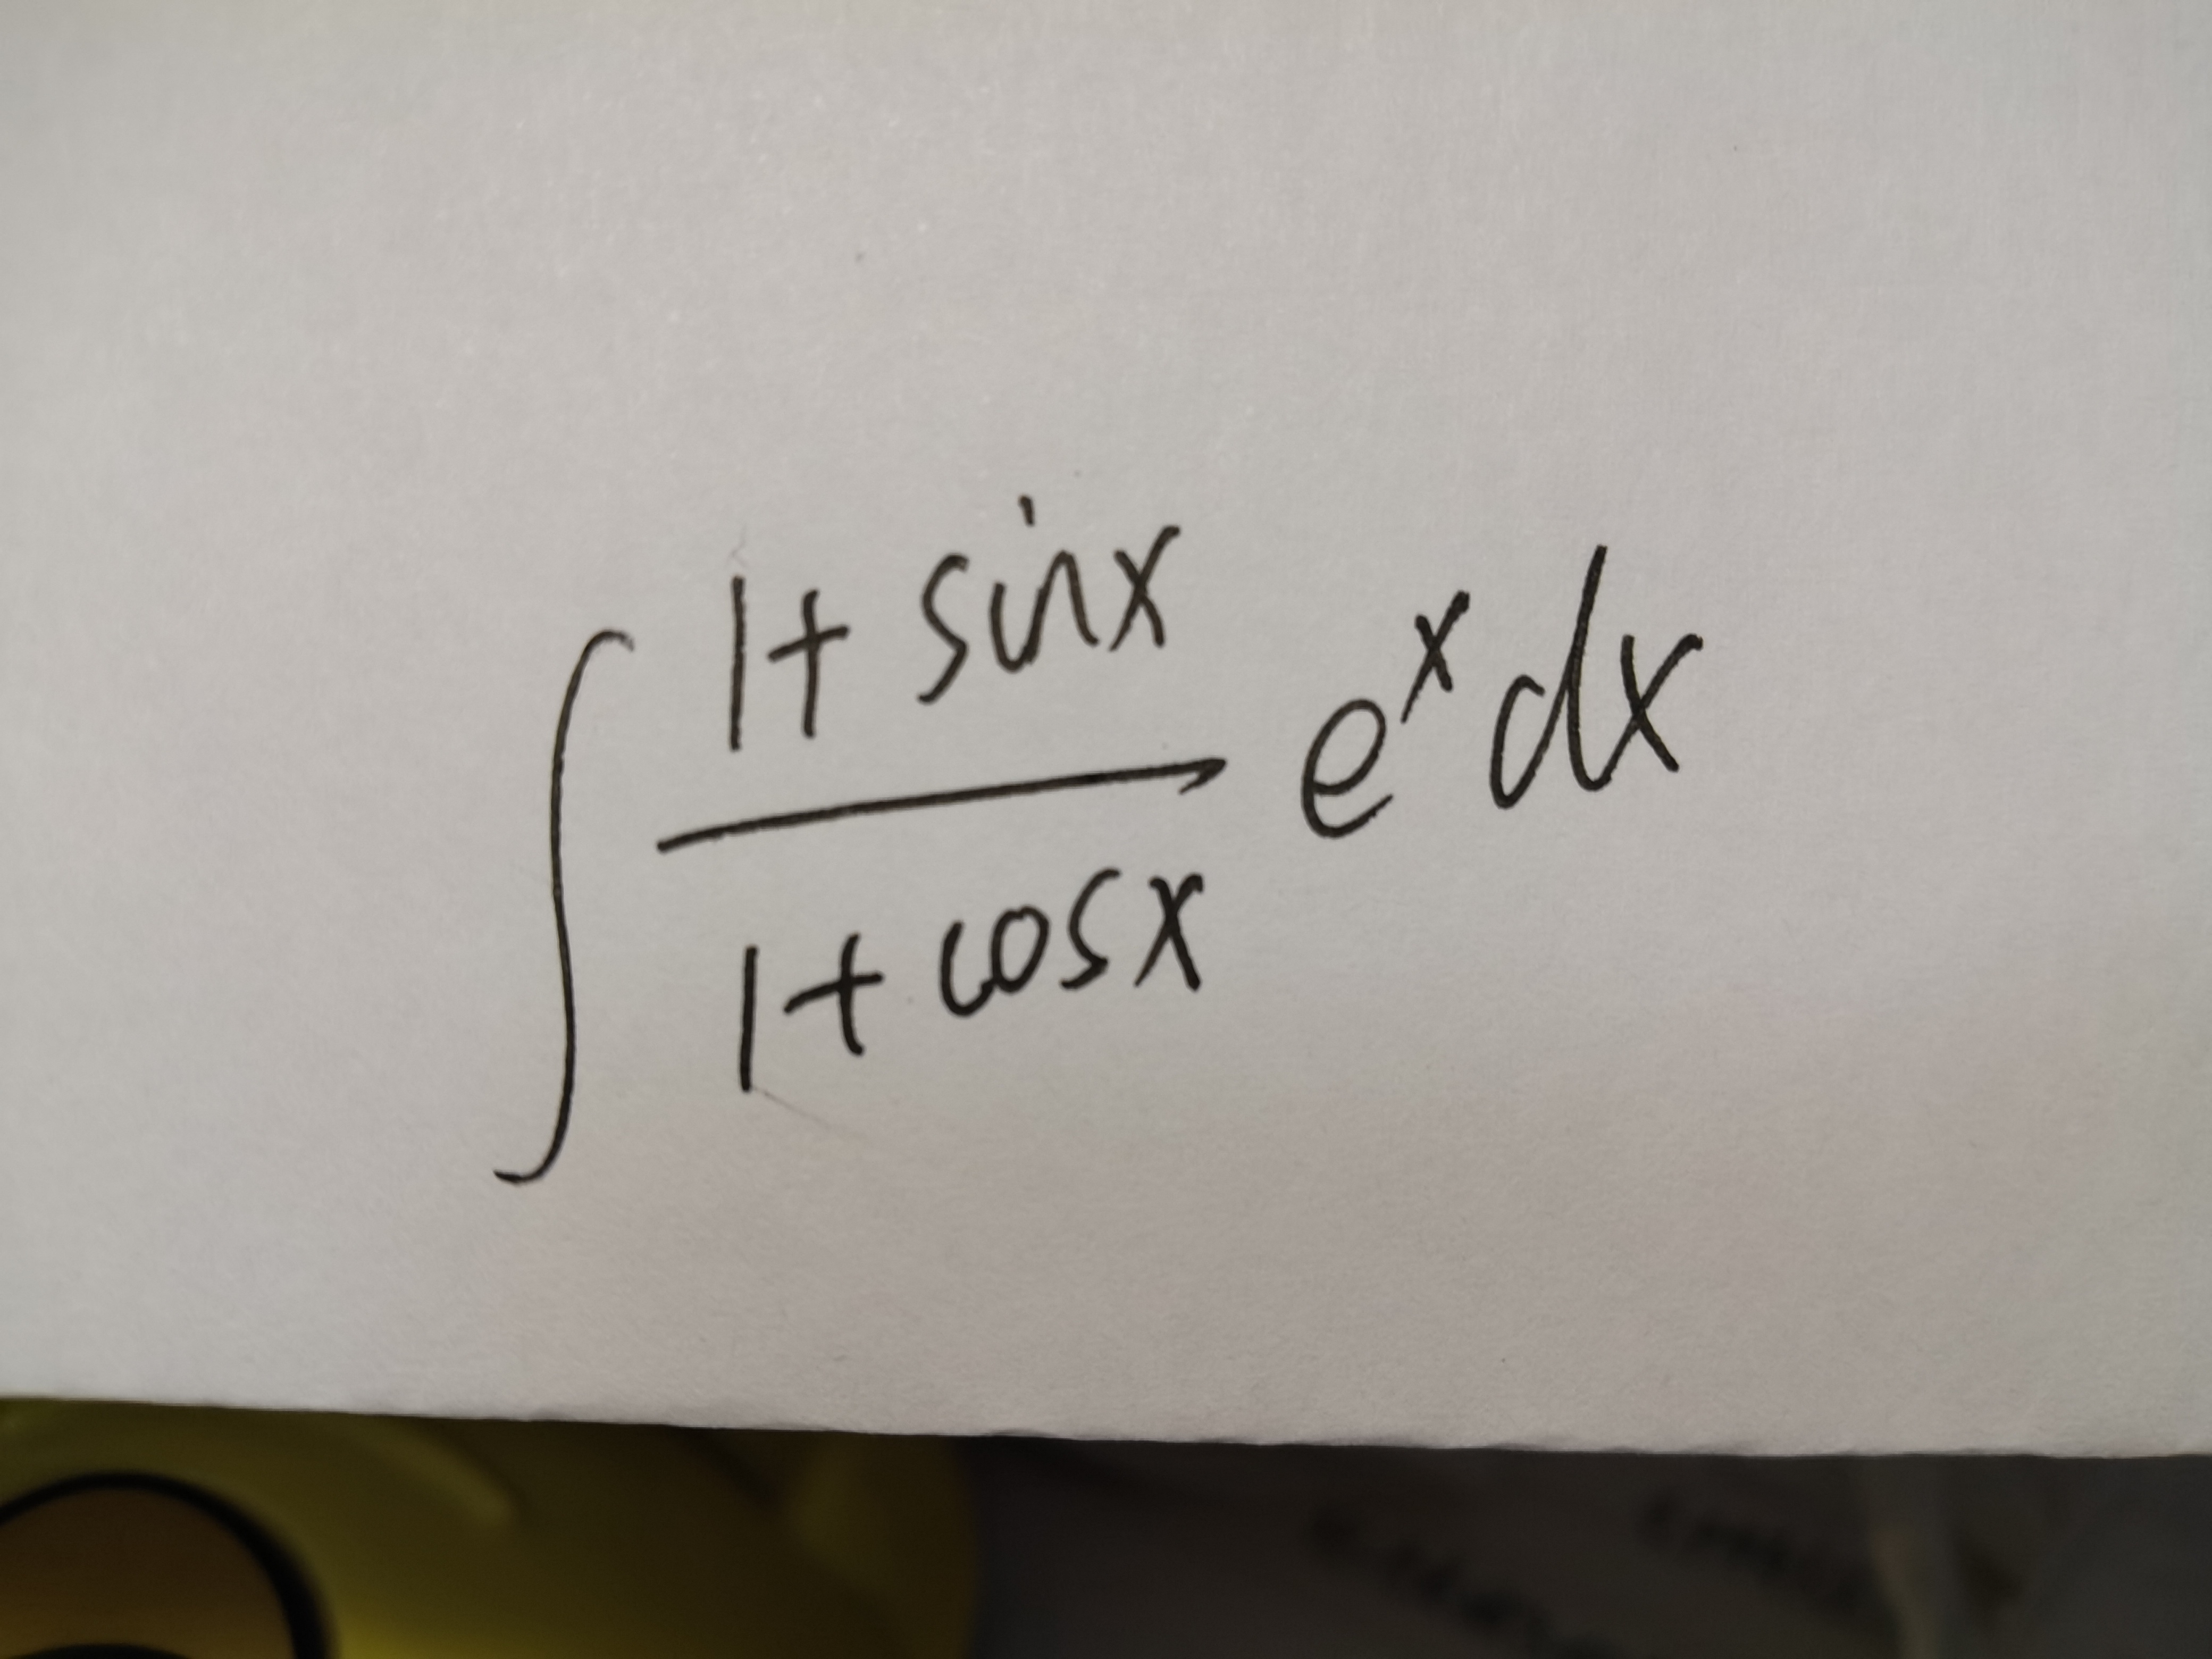 ∫ (1 + sin x)/(1 + cos x) eˣ dx